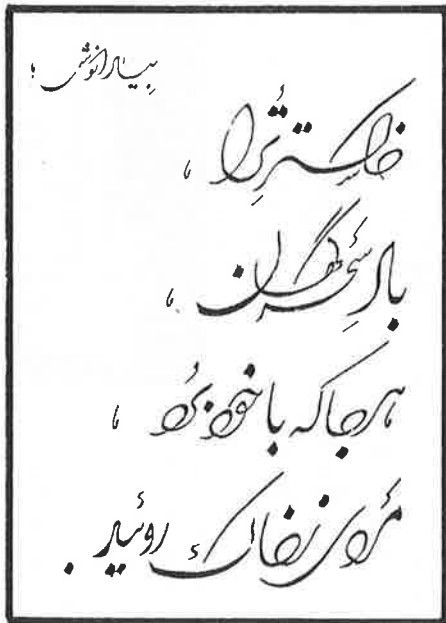 خاکستر تُرا ،
بادِ سحرگهان ،
هر جا که با خود بُرد ،
مُردی ز خاک روئید .